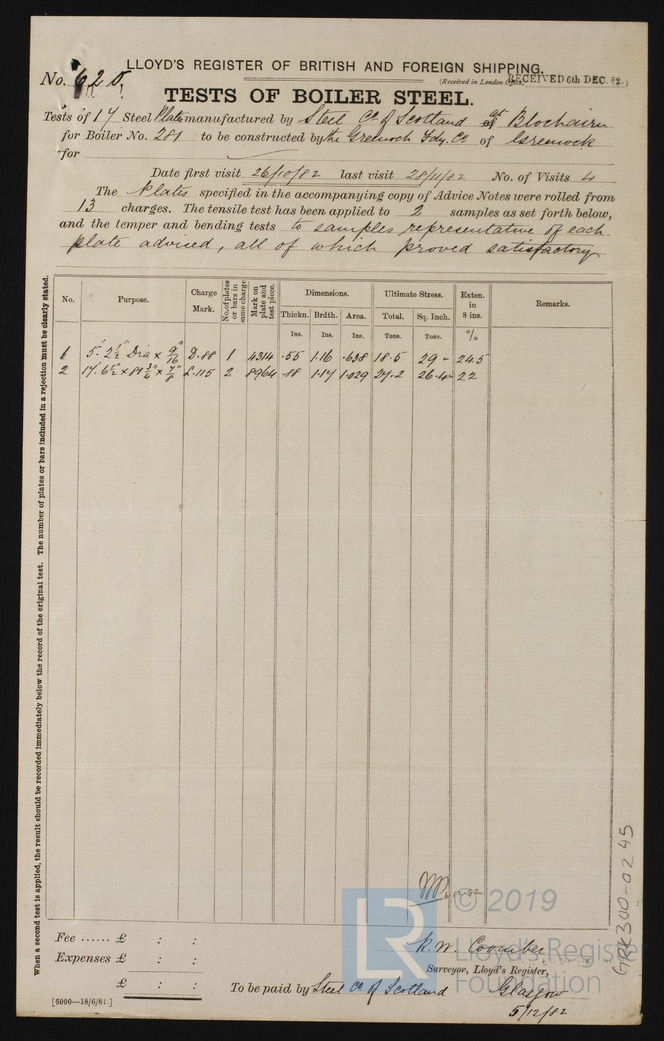 LLOYD'S REGISTER OF BRITISH AND FOREIGN SHIPPING.
No. 620. (Received in London Office, RECEIVED 6th DEC. 82.)
TESTS OF BOILER STEEL.
Tests of 17 Steel Plates manufactured by Steel Co of Scotland of at Blochairn
for Boiler No. 281 to be constructed by the Greenock Fdry. Co of Greenock
for
Date first visit 26/10/82 last visit 28/11/82 No. of Visits 4
The Plates specified in the accompanying copy of Advice Notes were rolled from
13 charges. The tensile test has been applied to 2 samples as set forth below,
and the temper and bending tests to samples representative of each
plate advised, all of which proved satisfactory
When a second test is applied, the result should be recorded immediately below the record of the original test. The number of plates or bars included in a rejection must be clearly stated.
No. Purpose. Charge Mark. No. of plates or bars in same charge Mark on plate and test piece. Dimensions. Ultimate Stress. Exten. in 8 ins. Remarks.
Thickn. Brdth. Area. Total. Sq. Inch.
Ins. Ins. Ins. Tons. Tons. %
1 5'. 2½" Dia x 9/16" D.88 1 4314 .55 1.16 .638 18.5 29 - 24.5
2 17'. 6½" x 81¾" x 7/8" £.115 2 8964 .88 1.17 1.029 27.2 26.4 22
© 2019
LR
Lloyd's Register
Foundation
GRK300-0245
Fee ...... £ : :
Expenses £ : :
£ : :
R. W. Coomber
Surveyor, Lloyd's Register,
To be paid by Steel Co of Scotland Glasgow
5/12/82
[6000—18/6/81.]